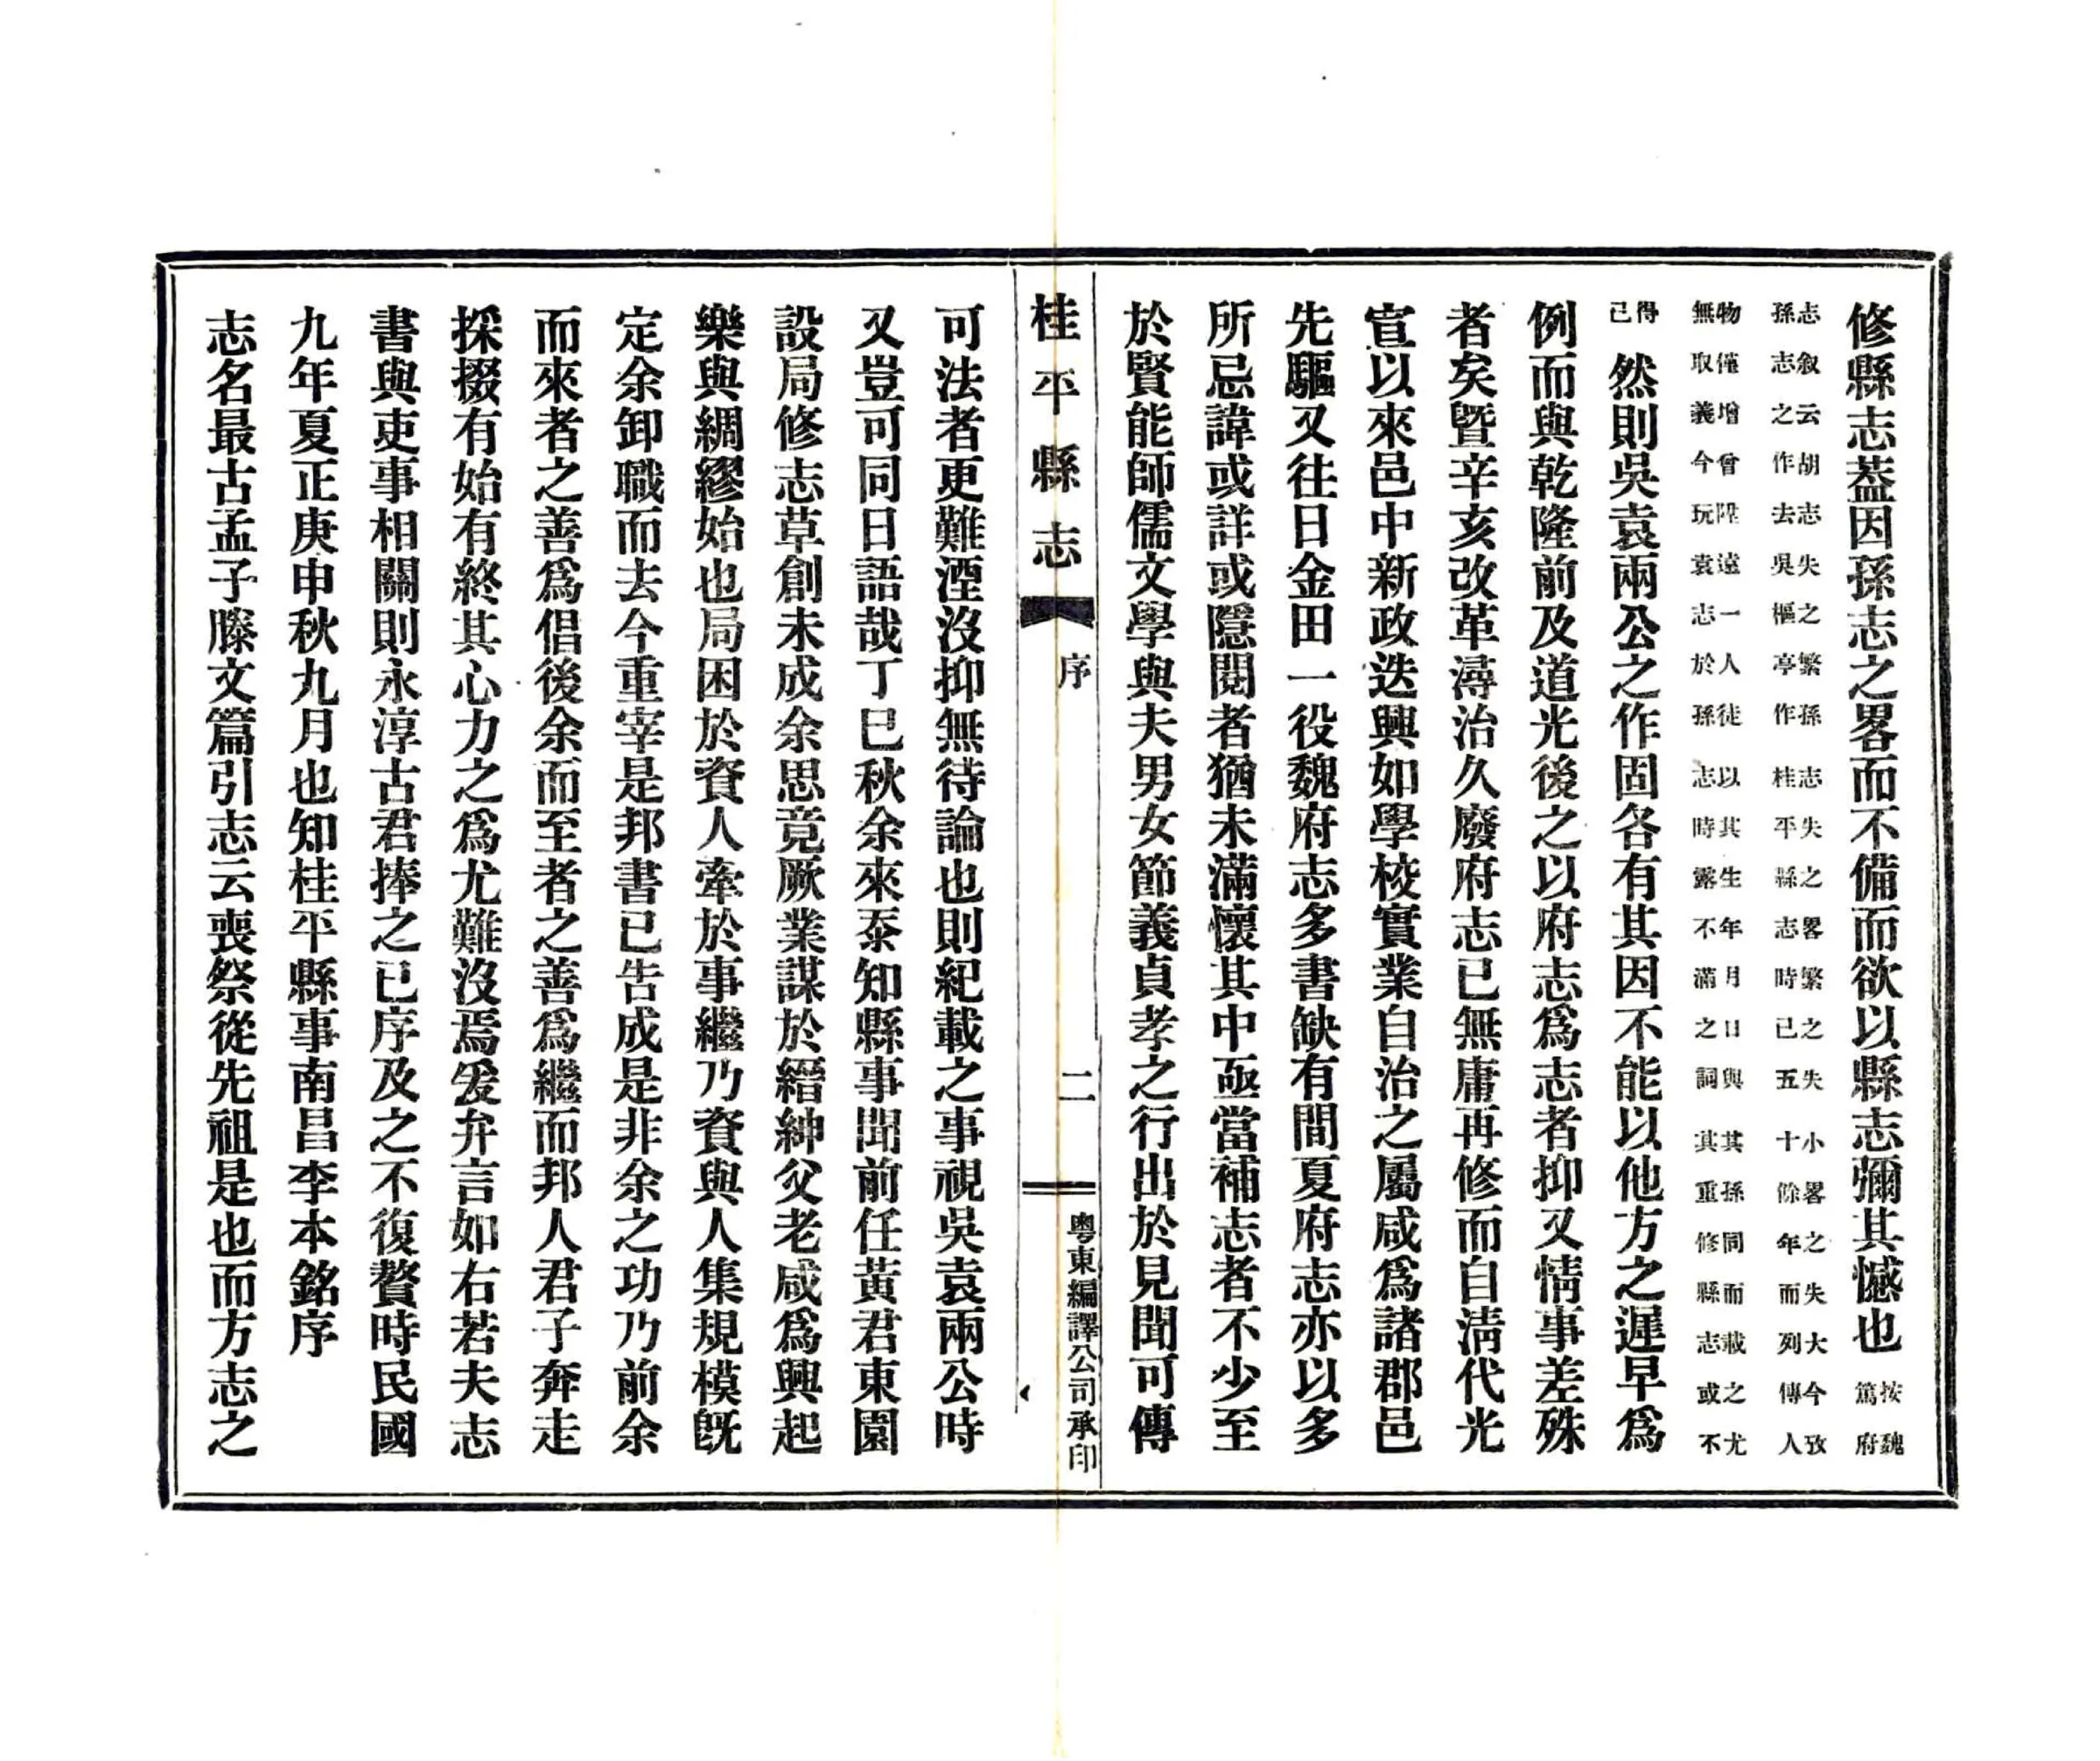 修縣志葢因孫志之畧而不備而欲以縣志彌其憾也
按魏
篤府
志叙云胡志失之繁孫志失之畧繁之失小畧之失大今攷
孫志之作去吳樞亭作桂平縣志時已五十餘年而列傳人
物僅增曾陞遠一人徒以其生年月日與其孫同而載之尤
無取義今玩袁志於孫志時露不滿之詞其重修縣志或不
得
已
然則吳袁兩公之作固各有其因不能以他方之遲早爲
例而與乾隆前及道光後之以府志爲志者抑又情事差殊
者矣曁辛亥改革潯治久廢府志已無庸再修而自淸代光
宣以來邑中新政迭興如學校實業自治之屬咸爲諸郡邑
先驅又往日金田一役魏府志多書缺有間夏府志亦以多
所忌諱或詳或隱閱者猶未滿懷其中亟當補志者不少至
於賢能師儒文學與夫男女節義貞孝之行出於見聞可傳
桂平縣志
序
二
粵東編譯公司承印
可法者更難湮沒抑無待論也則紀載之事視吳袁兩公時
又豈可同日語哉丁巳秋余來忝知縣事聞前任黃君東園
設局修志草創未成余思竟厥業謀於縉紳父老咸爲興起
樂與綢繆始也局困於資人牽於事繼乃資與人集規模旣
定余卸職而去今重宰是邦書已告成是非余之功乃前余
而來者之善爲倡後余而至者之善爲繼而邦人君子奔走
採掇有始有終其心力之爲尤難沒焉爰弁言如右若夫志
書與吏事相關則永淳古君捧之已序及之不復贅時民國
九年夏正庚申秋九月也知桂平縣事南昌李本銘序
志名最古孟子滕文篇引志云喪祭從先祖是也而方志之